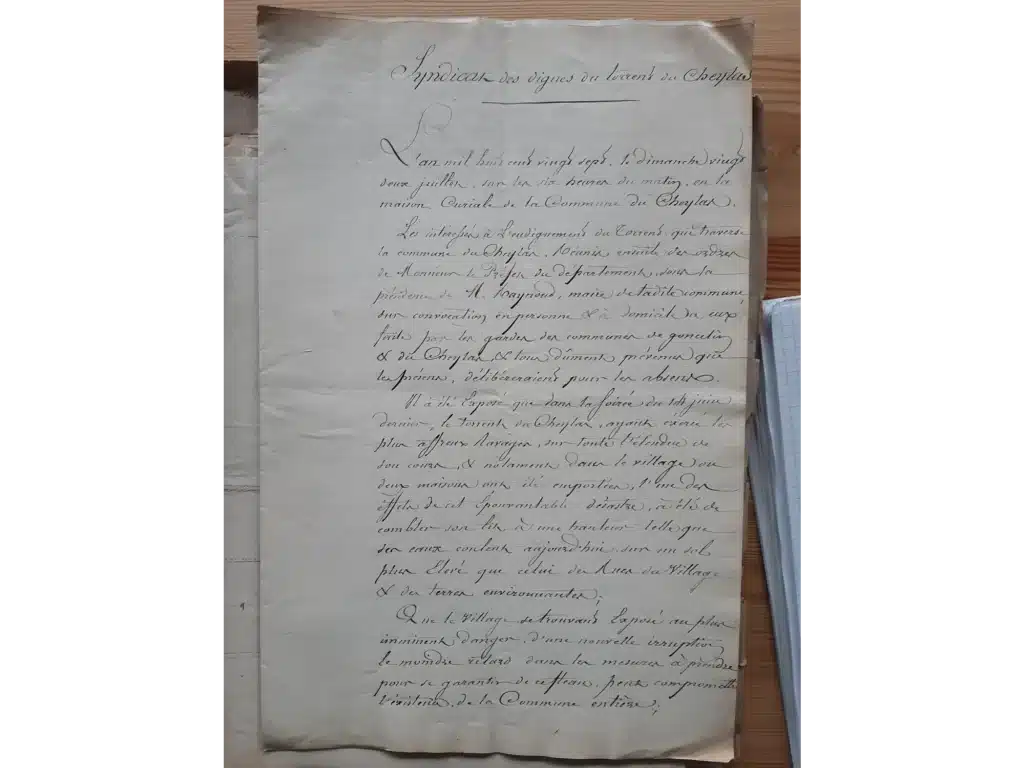 Syndicat des digues du torrent du Cheylas
L'an mil huit cent vingt sept, le dimanche vingt
deux juillet, sur les six heures du matin, en la
maison Curiale de la Commune du Cheylas.
Les intéressés à L'endiguement du Torrent, qui traverse
la commune du Cheylas, Réunis ensuite des ordres
de Monsieur le Préfet du département, sous la
présidence de M. Raynoud, maire de ladite commune,
sur convocation, en personne & à domicile de eux
faite par les gardes des communes de goncelin
& du Cheylas, & tous dûment prévenus que
les présens, délibéreraient pour les absens.
Il a été Exposé que dans la soirée du 14 juin
dernier, le torrent du Cheylas, ayant exercé les
plus affreux Ravages, sur toute l'étendue de
son cours, & notament dans le village ou
deux maisons ont été emportées, l'un des
effets de cet Epouvantable désastre, a été de
combler son lit à une hauteur telle que
ses eaux coulent aujourd'hui sur un sol
plus Elevé que celui des Rues du Village
& des terres environnantes;
Que le Village se trouvant Exposé au plus
imminent danger d'une nouvelle irruption
le moindre retard dans les mesures à prendre
pour se garantir de ce fleau, peut compromettre
l'existence de la Commune entière;